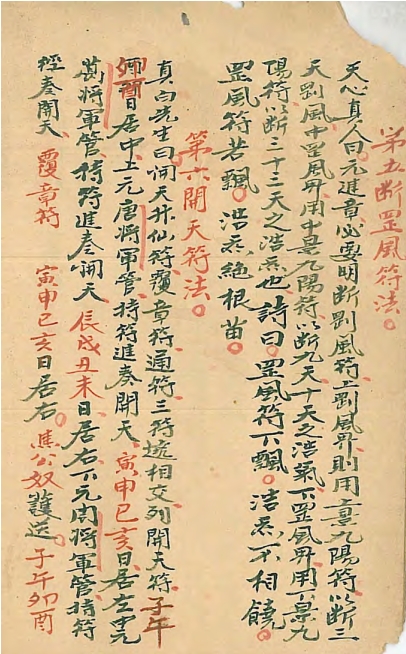 第五斷罡風符法。
天心真人曰元進章必要明斷剛風符上剛風界則用上景九陽符以斷三
天剛風中罡風界用中景九陽符以斷九天十天之浩氣下罡風界用下景九
陽符以斷三十三天之浩炁也詩曰罡風符下飄。浩炁不相饒。
罡風符若飄。浩炁絕根苗。
第六開天符法。
真白先生曰開天符仙符覆章符通符三符處相交列開天符子午
卯酉日居中上元唐將軍管持符進奏開天寅申巳亥日居左中元
葛將軍管持符進奏開天辰戌丑未日居右下元周將軍管持符
控奏開天 覆章符 寅申巳亥日居右。焦公奴護送。子午卯酉